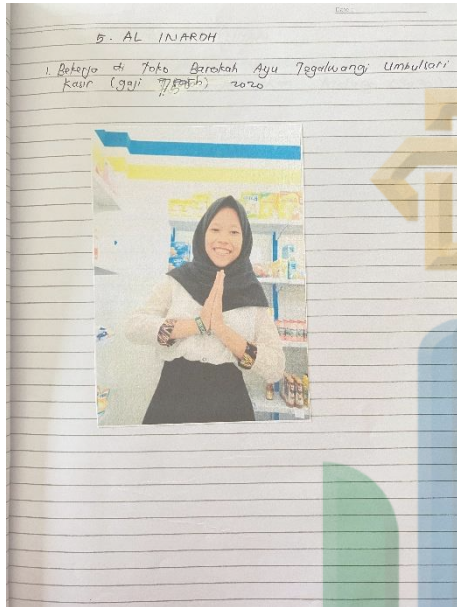 5. AL INAROH
1. Bekerja di Toko Barokah Ayu Tegalwangi Umbulsari
Kasir (gaji 2020